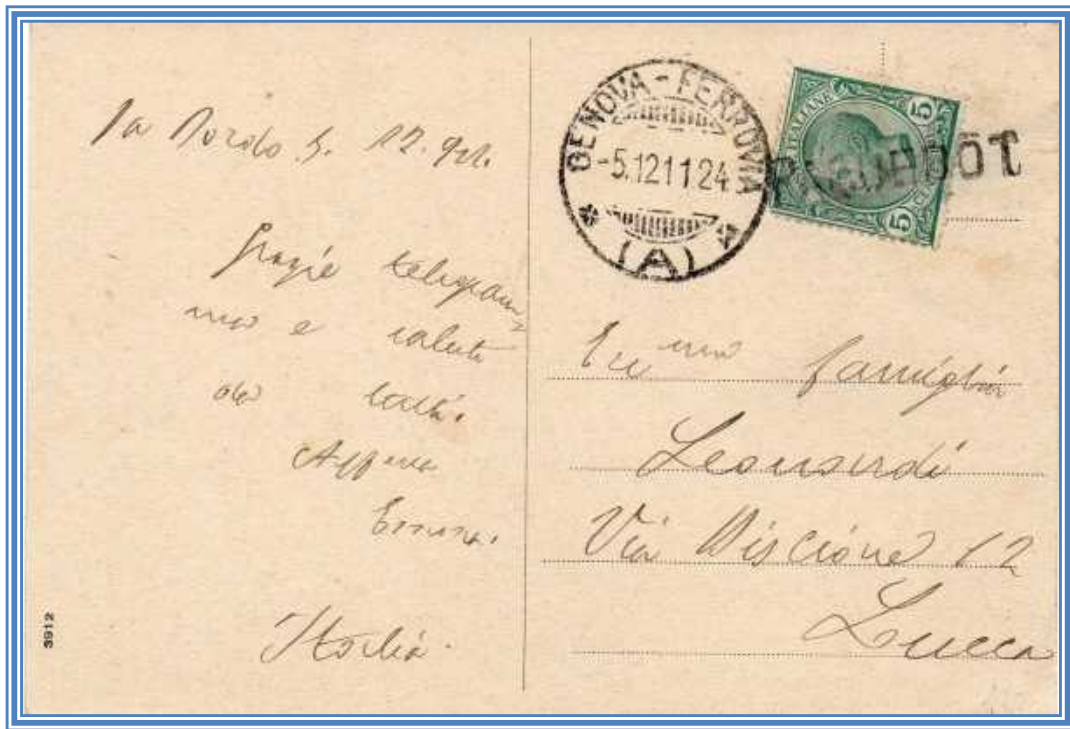 Da Bordo 5. 12. 911.
Grazie telegram
ma e saluti
a tutti.
Aff.ma
Emma.
Italia.
3912
GENOVA - FERROVIA
-5.12 11 24
(A)
ITALIANE
5
5
PAQUEBOT
famiglia
Leonardi
Via Biscione 12
Lucca